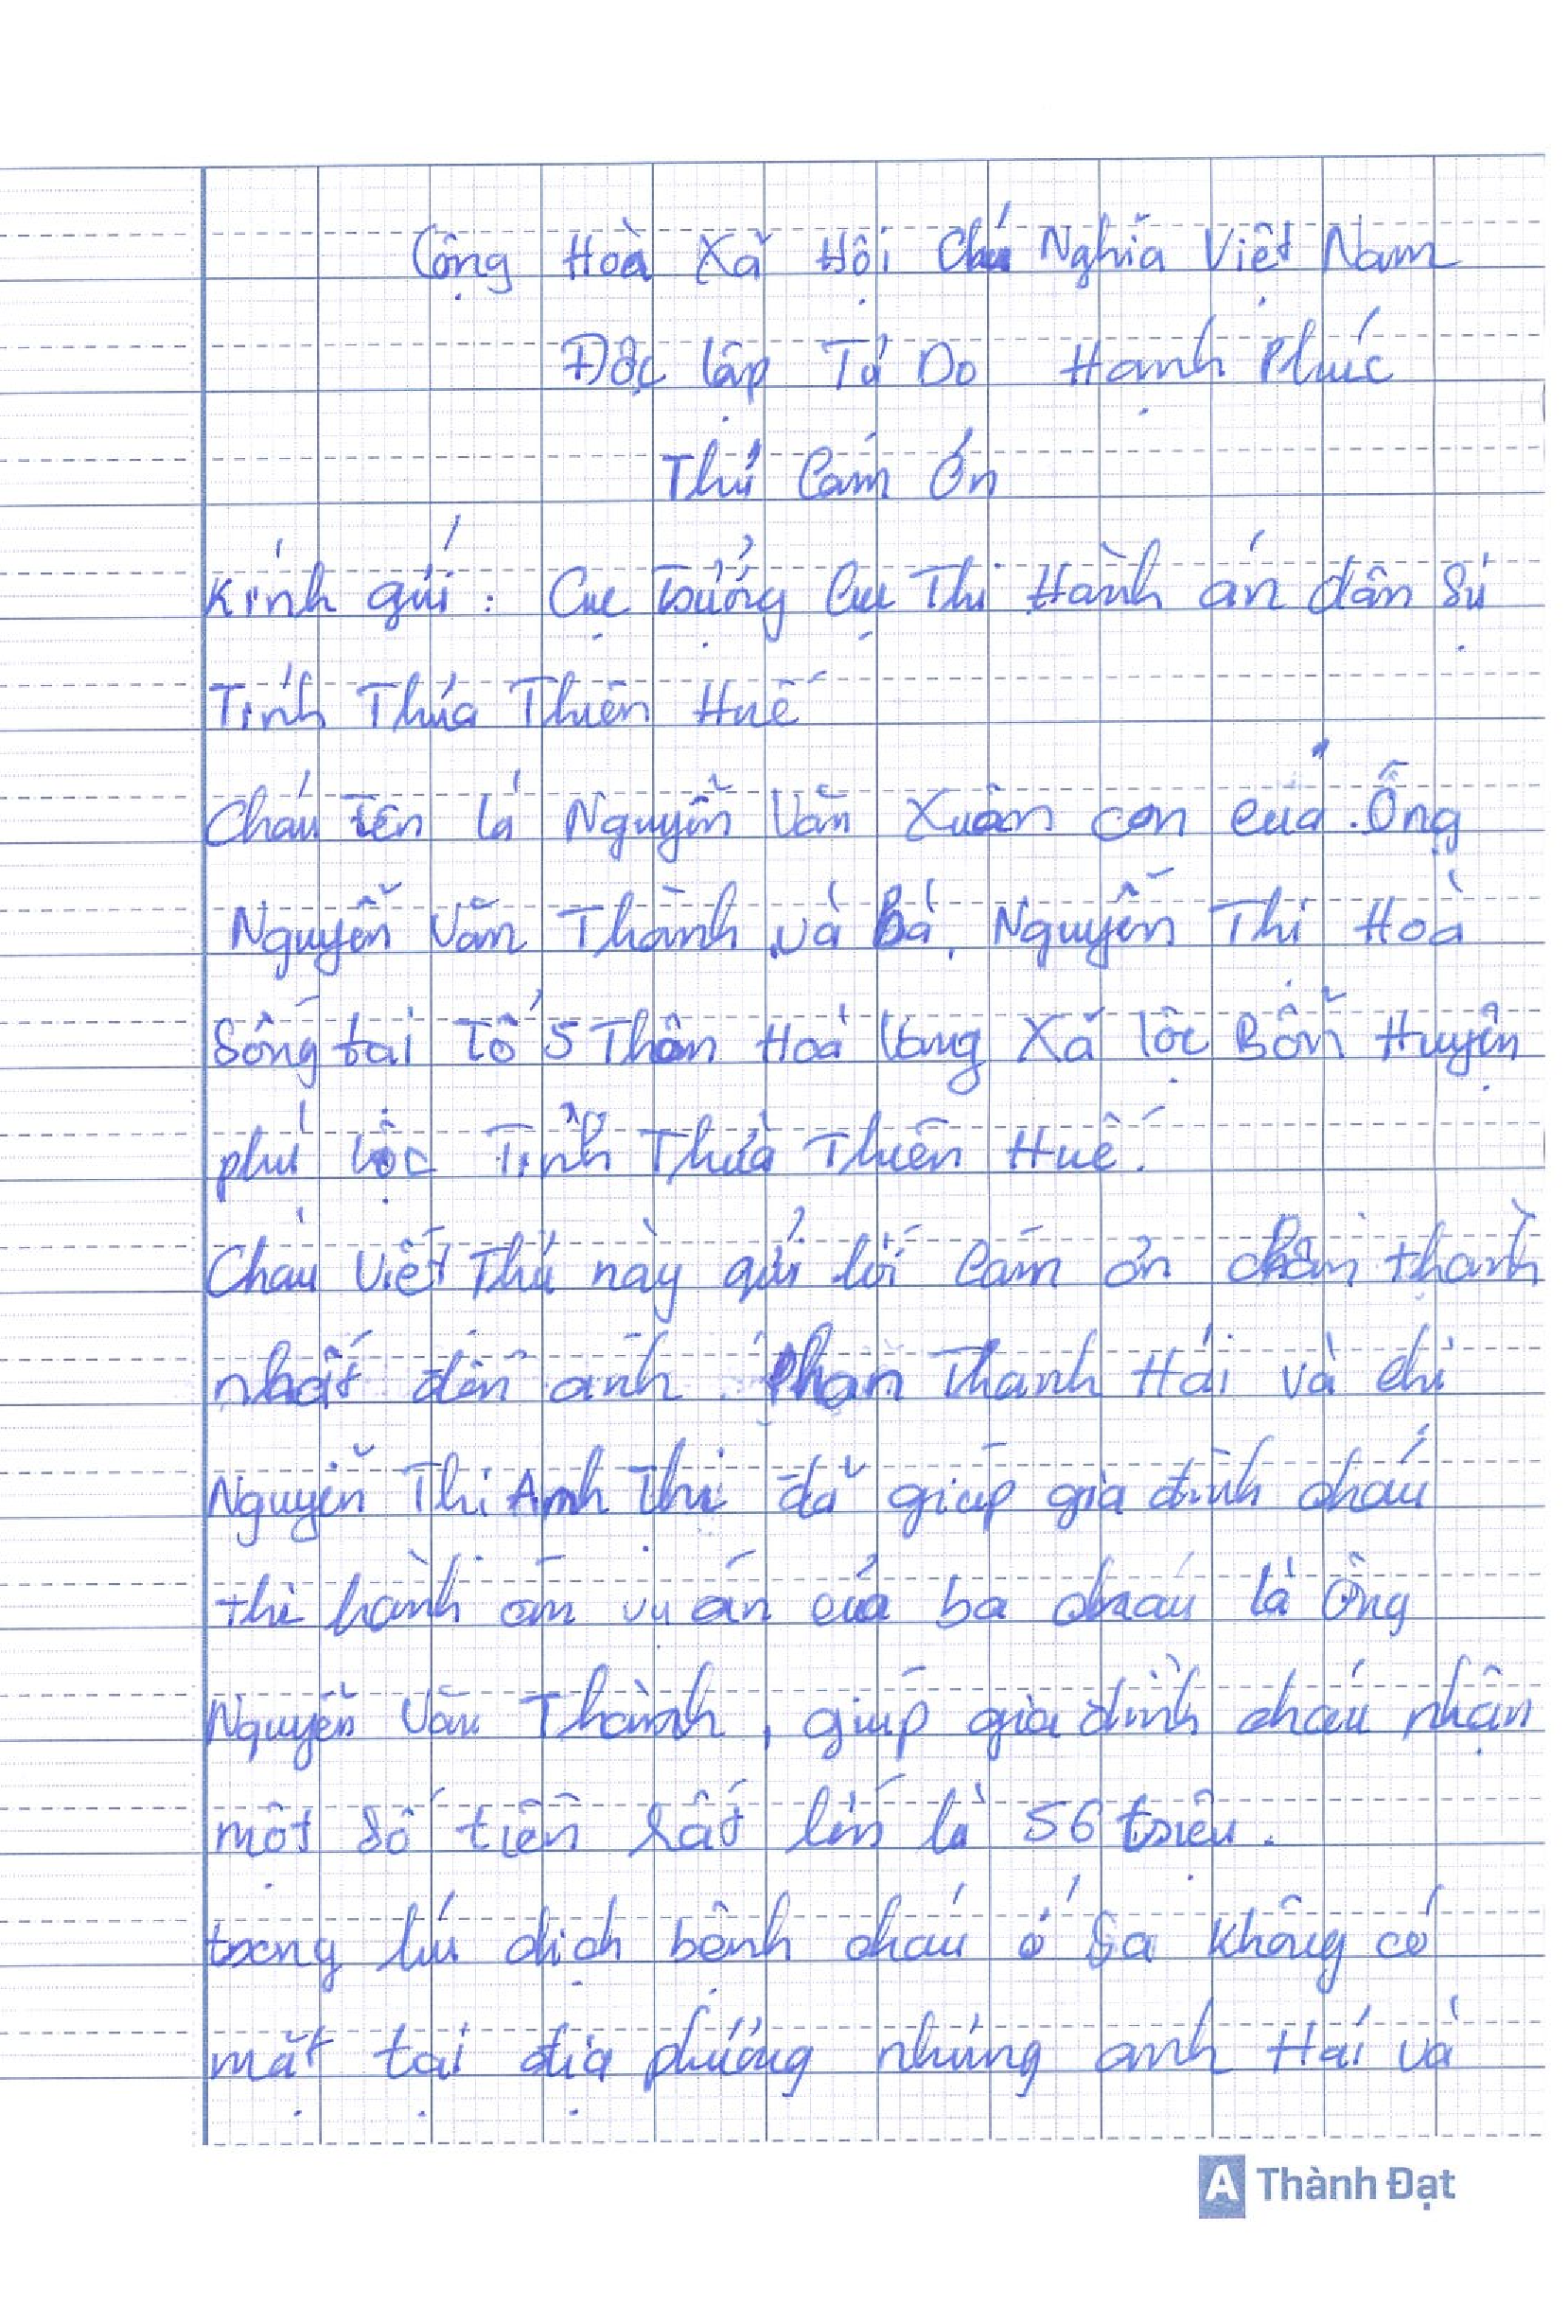 Cộng Hoà Xã Hội Chủ Nghĩa Việt Nam
Độc lập Tự Do Hạnh Phúc
Thư Cảm Ơn
Kính gửi : Cục Trưởng Cục Thi Hành án dân sự
Tỉnh Thừa Thiên Huế
Cháu Tên là Nguyễn Văn Xuân con của Ông
Nguyễn Văn Thành và Bà Nguyễn Thị Hoà
Sống tại Tổ 5 Thôn Hoà Vang Xã lộc Bổn Huyện
phú lộc Tỉnh Thừa Thiên Huế.
Cháu Viết Thư này gửi lời cảm ơn chân thành
nhất đến anh Phan Thanh Hải và chị
Nguyễn Thị Anh Thi đã giúp gia đình cháu
thi hành án vụ án của ba cháu là Ông
Nguyễn Văn Thành, giúp gia đình cháu nhận
một số tiền rất lớn là 56 triệu.
trong lúc dịch bệnh cháu ở xa không có
mặt tại địa phương nhưng anh Hải và
A Thành Đạt